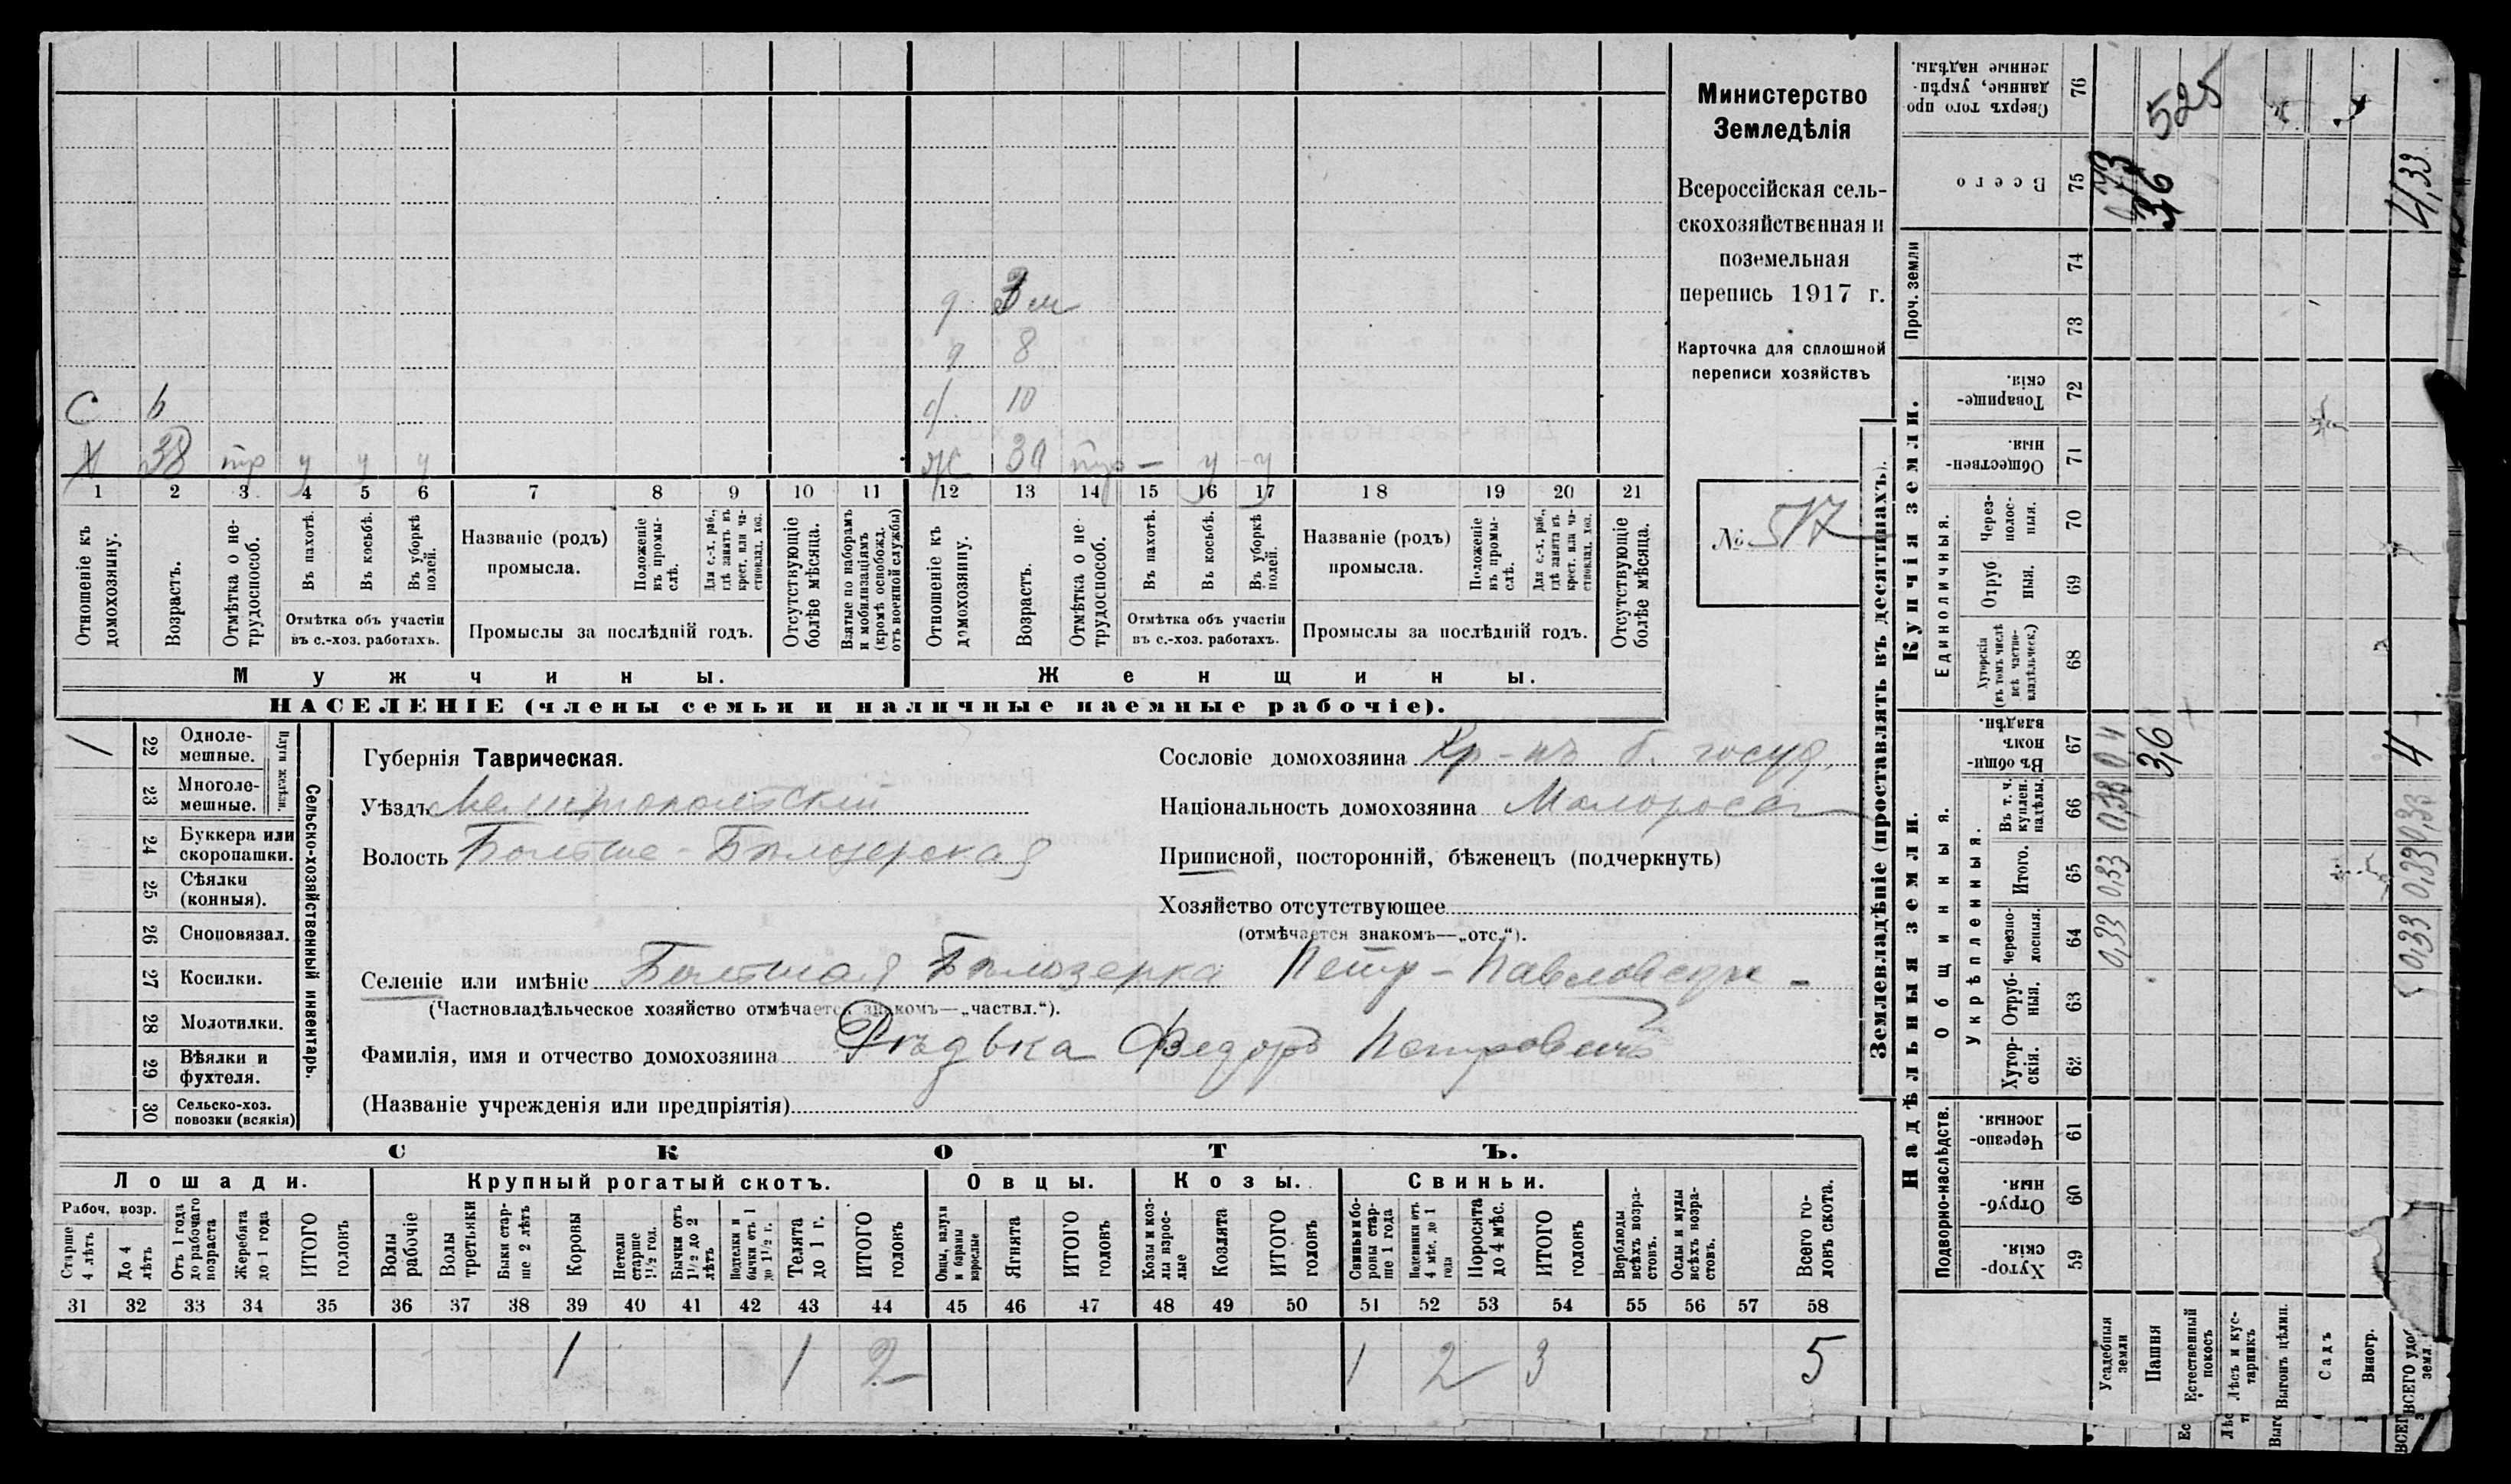 Министерство
Земледѣлія
Всероссійская сель-
скохозяйственная и
поземельная
перепись 1917 г.
Карточка для сплошной
переписи хозяйствъ
№ 517
д 3 м
д 8
С 6 д 10
Х 38 тр у у у Ж 39 тр — у у
1 2 3 4 5 6 7 8 9 10 11 12 13 14 15 16 17 18 19 20 21
Отношеніе къ домохозяину.
Возрастъ.
Отмѣтка о не-трудоспособ.
Въ пахотѣ.
Въ косьбѣ.
Въ уборкѣ полей.
Отмѣтка объ участіи
въ с.-хоз. работахъ.
Названіе (родъ)
промысла.
Положеніе въ промы-слѣ.
Для с.-х. раб., гдѣ занятъ въ крест. или ча-стновлад. хоз.
Промыслы за послѣдній годъ.
Отсутствующіе болѣе мѣсяца.
Взятые по наборамъ и мобилизаціямъ (кромѣ освобожд. отъ военной службы)
Отношеніе къ домохозяину.
Возрастъ.
Отмѣтка о не-трудоспособ.
Въ пахотѣ.
Въ косьбѣ.
Въ уборкѣ полей.
Отмѣтка объ участіи
въ с.-хоз. работахъ.
Названіе (родъ)
промысла.
Положеніе въ промы-слѣ.
Для с.-х. раб., гдѣ занята въ крест. или ча-стновлад. хоз.
Промыслы за послѣдній годъ.
Отсутствующіе болѣе мѣсяца.
Мужчины. Женщины.
НАСЕЛЕНІЕ (члены семьи и наличные наемные рабочіе).
Сельско-хозяйственный инвентарь.
Плуги желѣзн.
1 22 Одноле-мешные.
23 Многоле-мешные.
24 Буккера или скоропашки.
25 Сѣялки (конныя).
26 Сноповязал.
27 Косилки.
28 Молотилки.
29 Вѣялки и фухтеля.
30 Сельско-хоз. повозки (всякія)
Губернія Таврическая.
Уѣздъ Мелитопольскій
Волость Больше-Бѣлозерская
Сословіе домохозяина Кр-нъ б. госуд.
Національность домохозяина Малоросс
Приписной, посторонній, бѣженецъ (подчеркнуть)
Хозяйство отсутствующее
(отмѣчается знакомъ—„отс.“).
Селеніе или имѣніе Большая Бѣлозерка Петр-Павловск
(Частновладѣльческое хозяйство отмѣчается знакомъ—„частвл.“).
Фамилія, имя и отчество домохозяина Рѣдька Федоръ Петровичъ
(Названіе учрежденія или предпріятія)
СКОТЪ.
Лошади. Крупный рогатый скотъ. Овцы. Козы. Свиньи.
Рабоч. возр.
Старше 4 лѣтъ
До 4 лѣтъ
Отъ 1 года до рабочаго возраста
Жеребята до 1 года
ИТОГО головъ
Волы рабочіе
Волы третьяки
Быки стар-ше 2 лѣтъ
Коровы
Нетели старше 1½ год.
Бычки отъ 1½ до 2 лѣтъ
Подтелки и бычки отъ 1 до 1½ г.
Телята до 1 г.
ИТОГО головъ
Овцы, валухи и бараны взрослые
Ягнята
ИТОГО головъ
Козы и коз-лы взрос-лые
Козлята
ИТОГО головъ
Свиньи и бо-ровы стар-ше 1 года
Подсвинки отъ 4 мѣс. до 1 года
Поросята до 4 мѣс.
ИТОГО головъ
Верблюды всѣхъ возра-стовъ.
Ослы и мулы всѣхъ возра-стовъ.
Всего го-ловъ скота.
31 32 33 34 35 36 37 38 39 40 41 42 43 44 45 46 47 48 49 50 51 52 53 54 55 56 57 58
1 1 2 1 2 3 5
Землевладѣніе (проставлять въ десятинахъ).
Надѣльныя земли.
Купчія земли.
Проч. земли
Подворно-наслѣдств.
Общинныя.
Укрѣпленныя.
Единоличныя.
Хутор-скія. 59
Отруб-ныя. 60
Черезпо-лосныя. 61
Хутор-скія. 62
Отруб-ныя. 63
Черезпо-лосныя. 64
Итого. 65
Въ т. ч. куплен. надѣлы. 66
Въ общи-номъ владѣн. 67
Хуторскія (въ томъ числѣ всѣ частно-владѣльческ.) 68
Отруб-ныя. 69
Через-полос-ныя. 70
Обществен-ныя. 71
Товарище-скія. 72
73
74
Всего 75
Сверхъ того про-данные, укрѣп-ленные надѣлы. 76
Усадебныя земли 0,33 0,33 0,33 0 4
Пашня 3,6 36 525
Естественный покосъ
Лѣсъ и кус-тарникъ
Выгонъ цѣлин.
Садъ
Виногр.
0,33 0,33 0,33 4 4,33